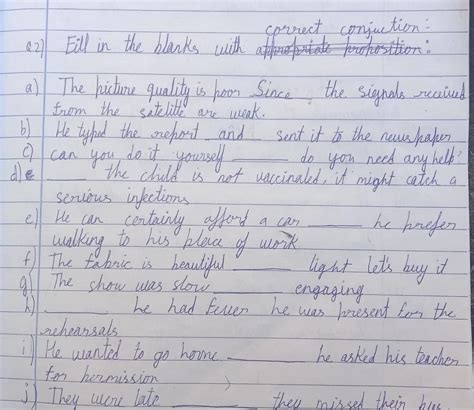 correct conjuction:
Q.2) Fill in the blanks with appropriate proposition:
a) The picture quality is poor Since the signals received
from the satelitte are weak.
b) He typed the report and sent it to the newspaper
c) can you do it yourself ______ do you need any help?
d) ______ the child is not vaccinated, it might catch a
serious infections
e) He can certainly afford a car ______ he prefer
walking to his place of work
f) The fabric is beautiful ______ light let's buy it
g) The show was slow ______ engaging
h) ______ he had fever he was present for the
rehearsals
i) He wanted to go home ______ he asked his teacher
for permission
j) They were late ______ they missed their bus